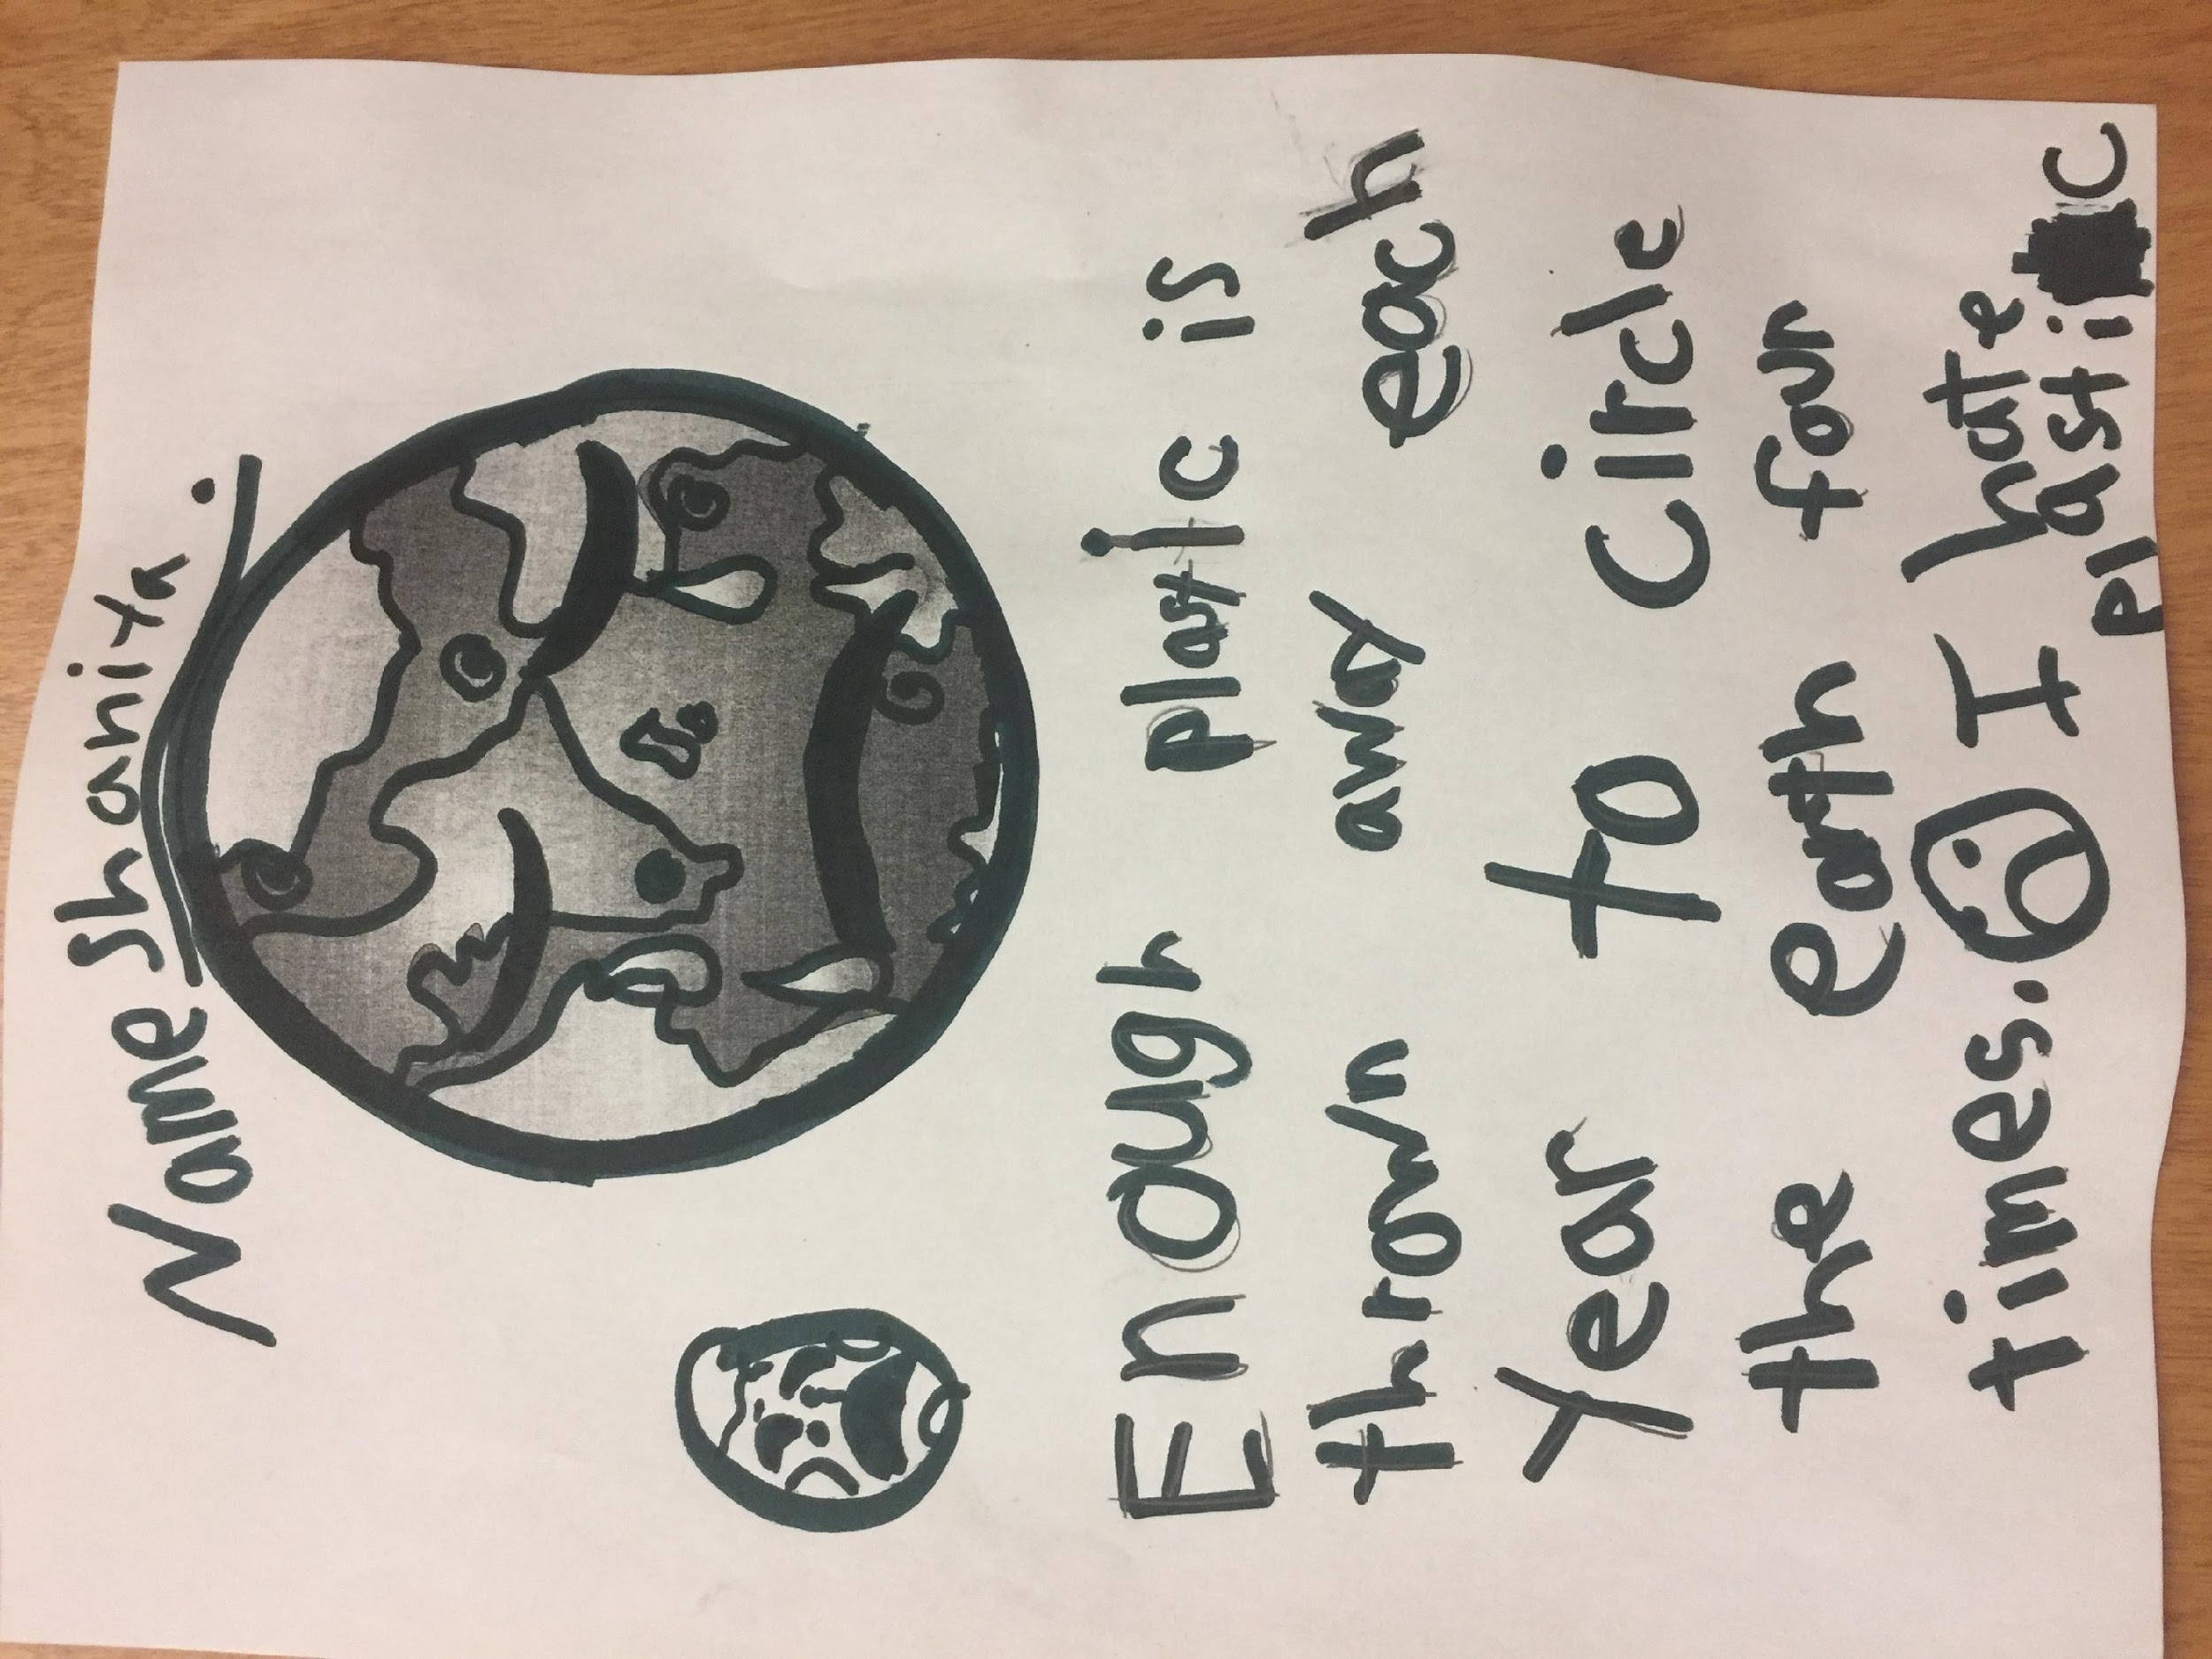 Name Shanita.
Enough plastic is
thrown away each
Year to circle
the earth four
times. I hate
plastic